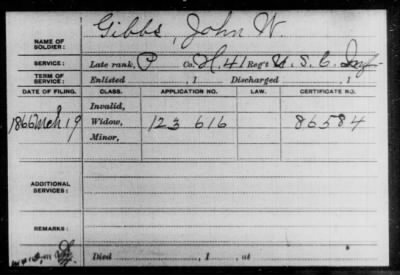 Gibbs, John W.
NAME OF SOLDIER:
SERVICE: Late rank, P Co. H, 41 Reg't U. S. C. Inf
TERM OF SERVICE: Enlisted , 1 Discharged , 1
DATE OF FILING. CLASS. APPLICATION NO. LAW. CERTIFICATE NO.
Invalid,
1866 Mch 19 Widow, 123 616 86584
Minor,
ADDITIONAL SERVICES:
REMARKS:
Died , 1 , at